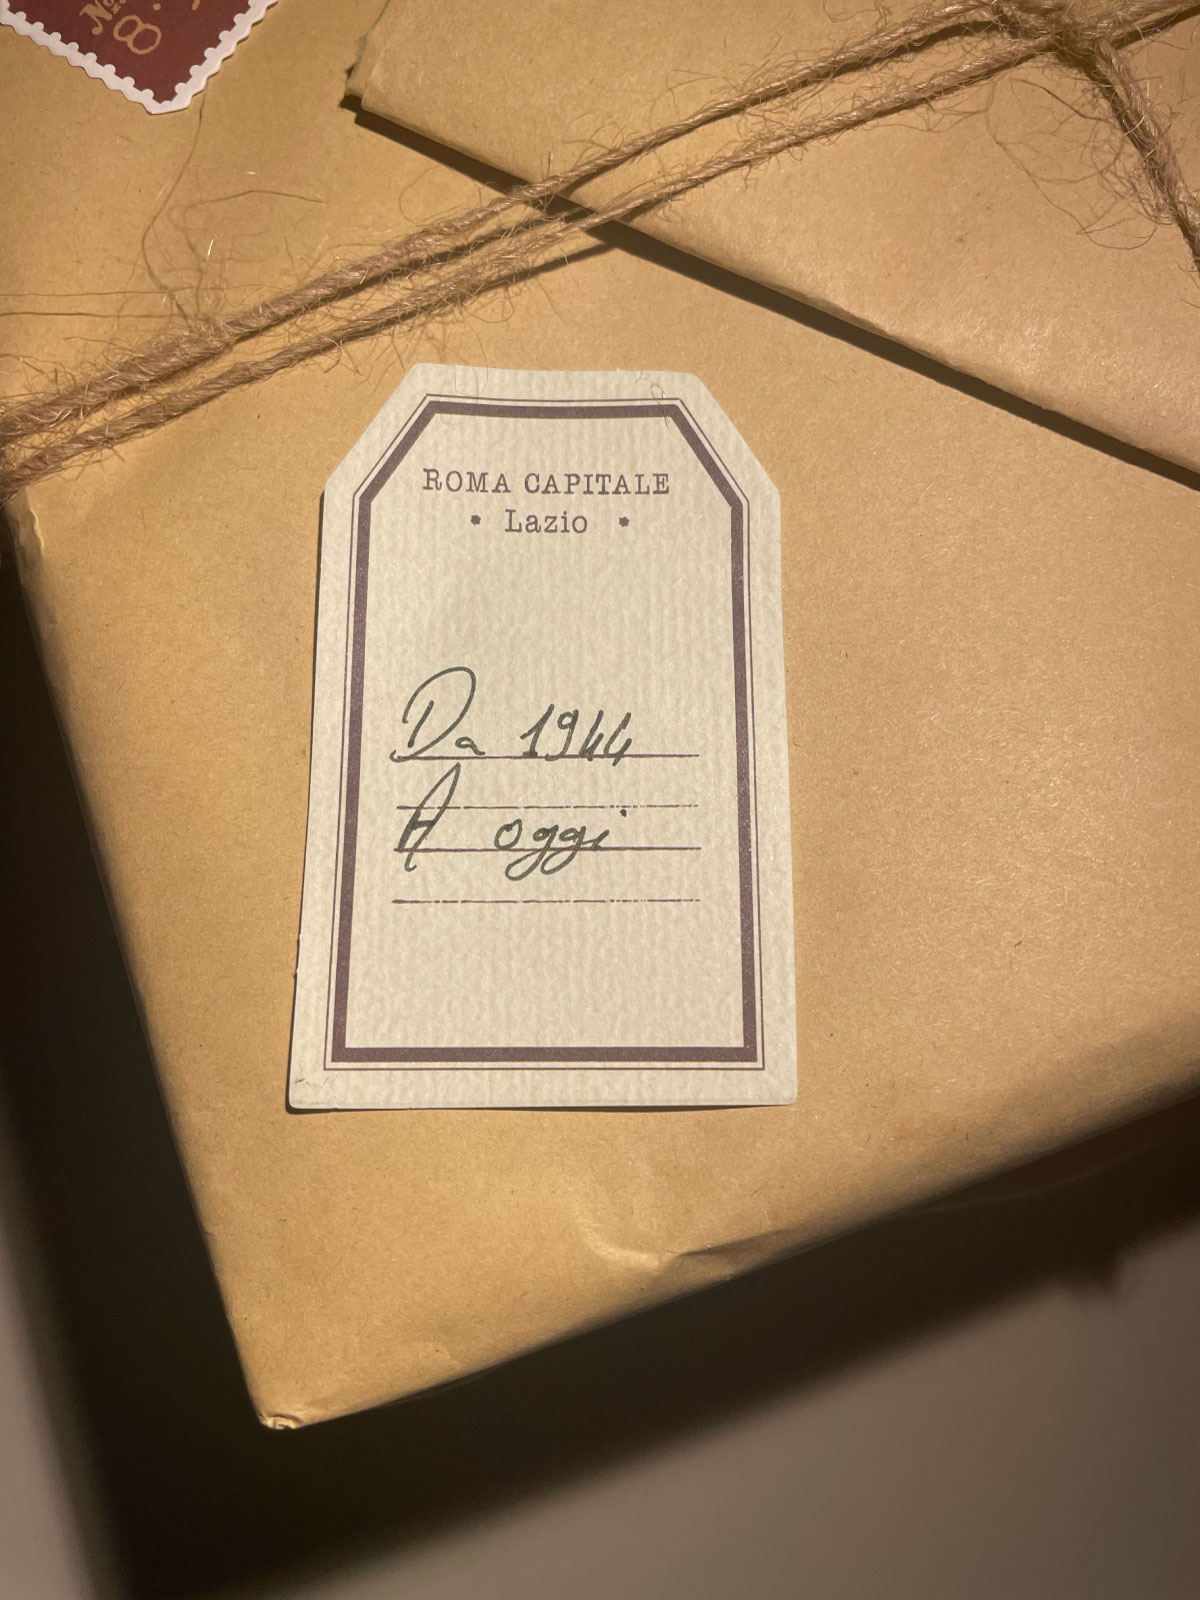 No. 8
ROMA CAPITALE
* Lazio *
Da 1944
A oggi